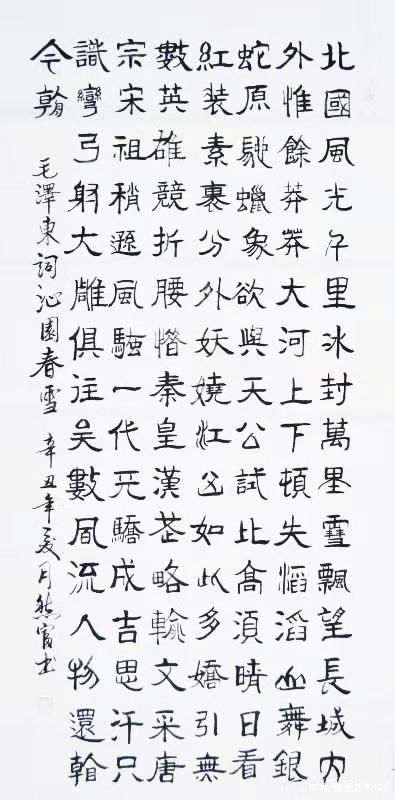 北國風光千里冰封萬里雪飄望長城內
外惟餘莽莽大河上下頓失滔滔山舞銀
蛇原馳蠟象欲與天公試比高須晴日看
紅裝素裹分外妖嬈江山如此多嬌引無
數英雄競折腰惜秦皇漢武略輸文采唐
宗宋祖稍遜風騷一代天驕成吉思汗只
識彎弓射大雕俱往矣數風流人物還看
今朝
毛澤東詞沁園春雪 辛丑年夏月書